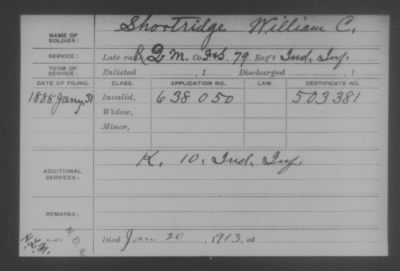 NAME OF SOLDIER: Shortridge William C.
SERVICE: Late rank R.Q.M. Co. F&S. 79 Reg't Ind. Inf.
TERM OF SERVICE: Enlisted , 1 Discharged , 1
DATE OF FILING. CLASS. APPLICATION NO. LAW. CERTIFICATE NO.
1888 Jany 31 Invalid, 638 050 503381
Widow,
Minor,
ADDITIONAL SERVICES: K. 10. Ind. Inf.
REMARKS:
Died Jan 20 1913, at